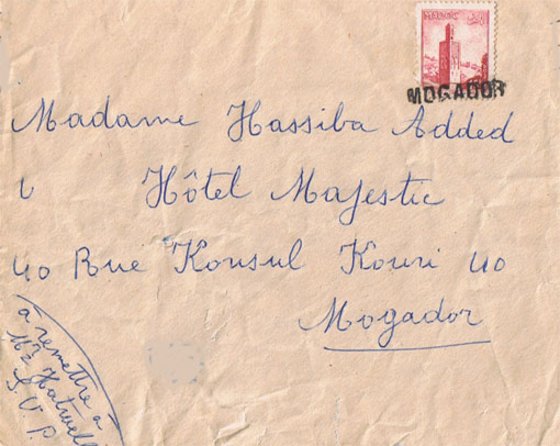 MAROC
MOGADOR
Madame Hassiba Added
Hôtel Majestic
40 Rue Konsul Kouri 40
Mogador
à remettre à
S. V. P.